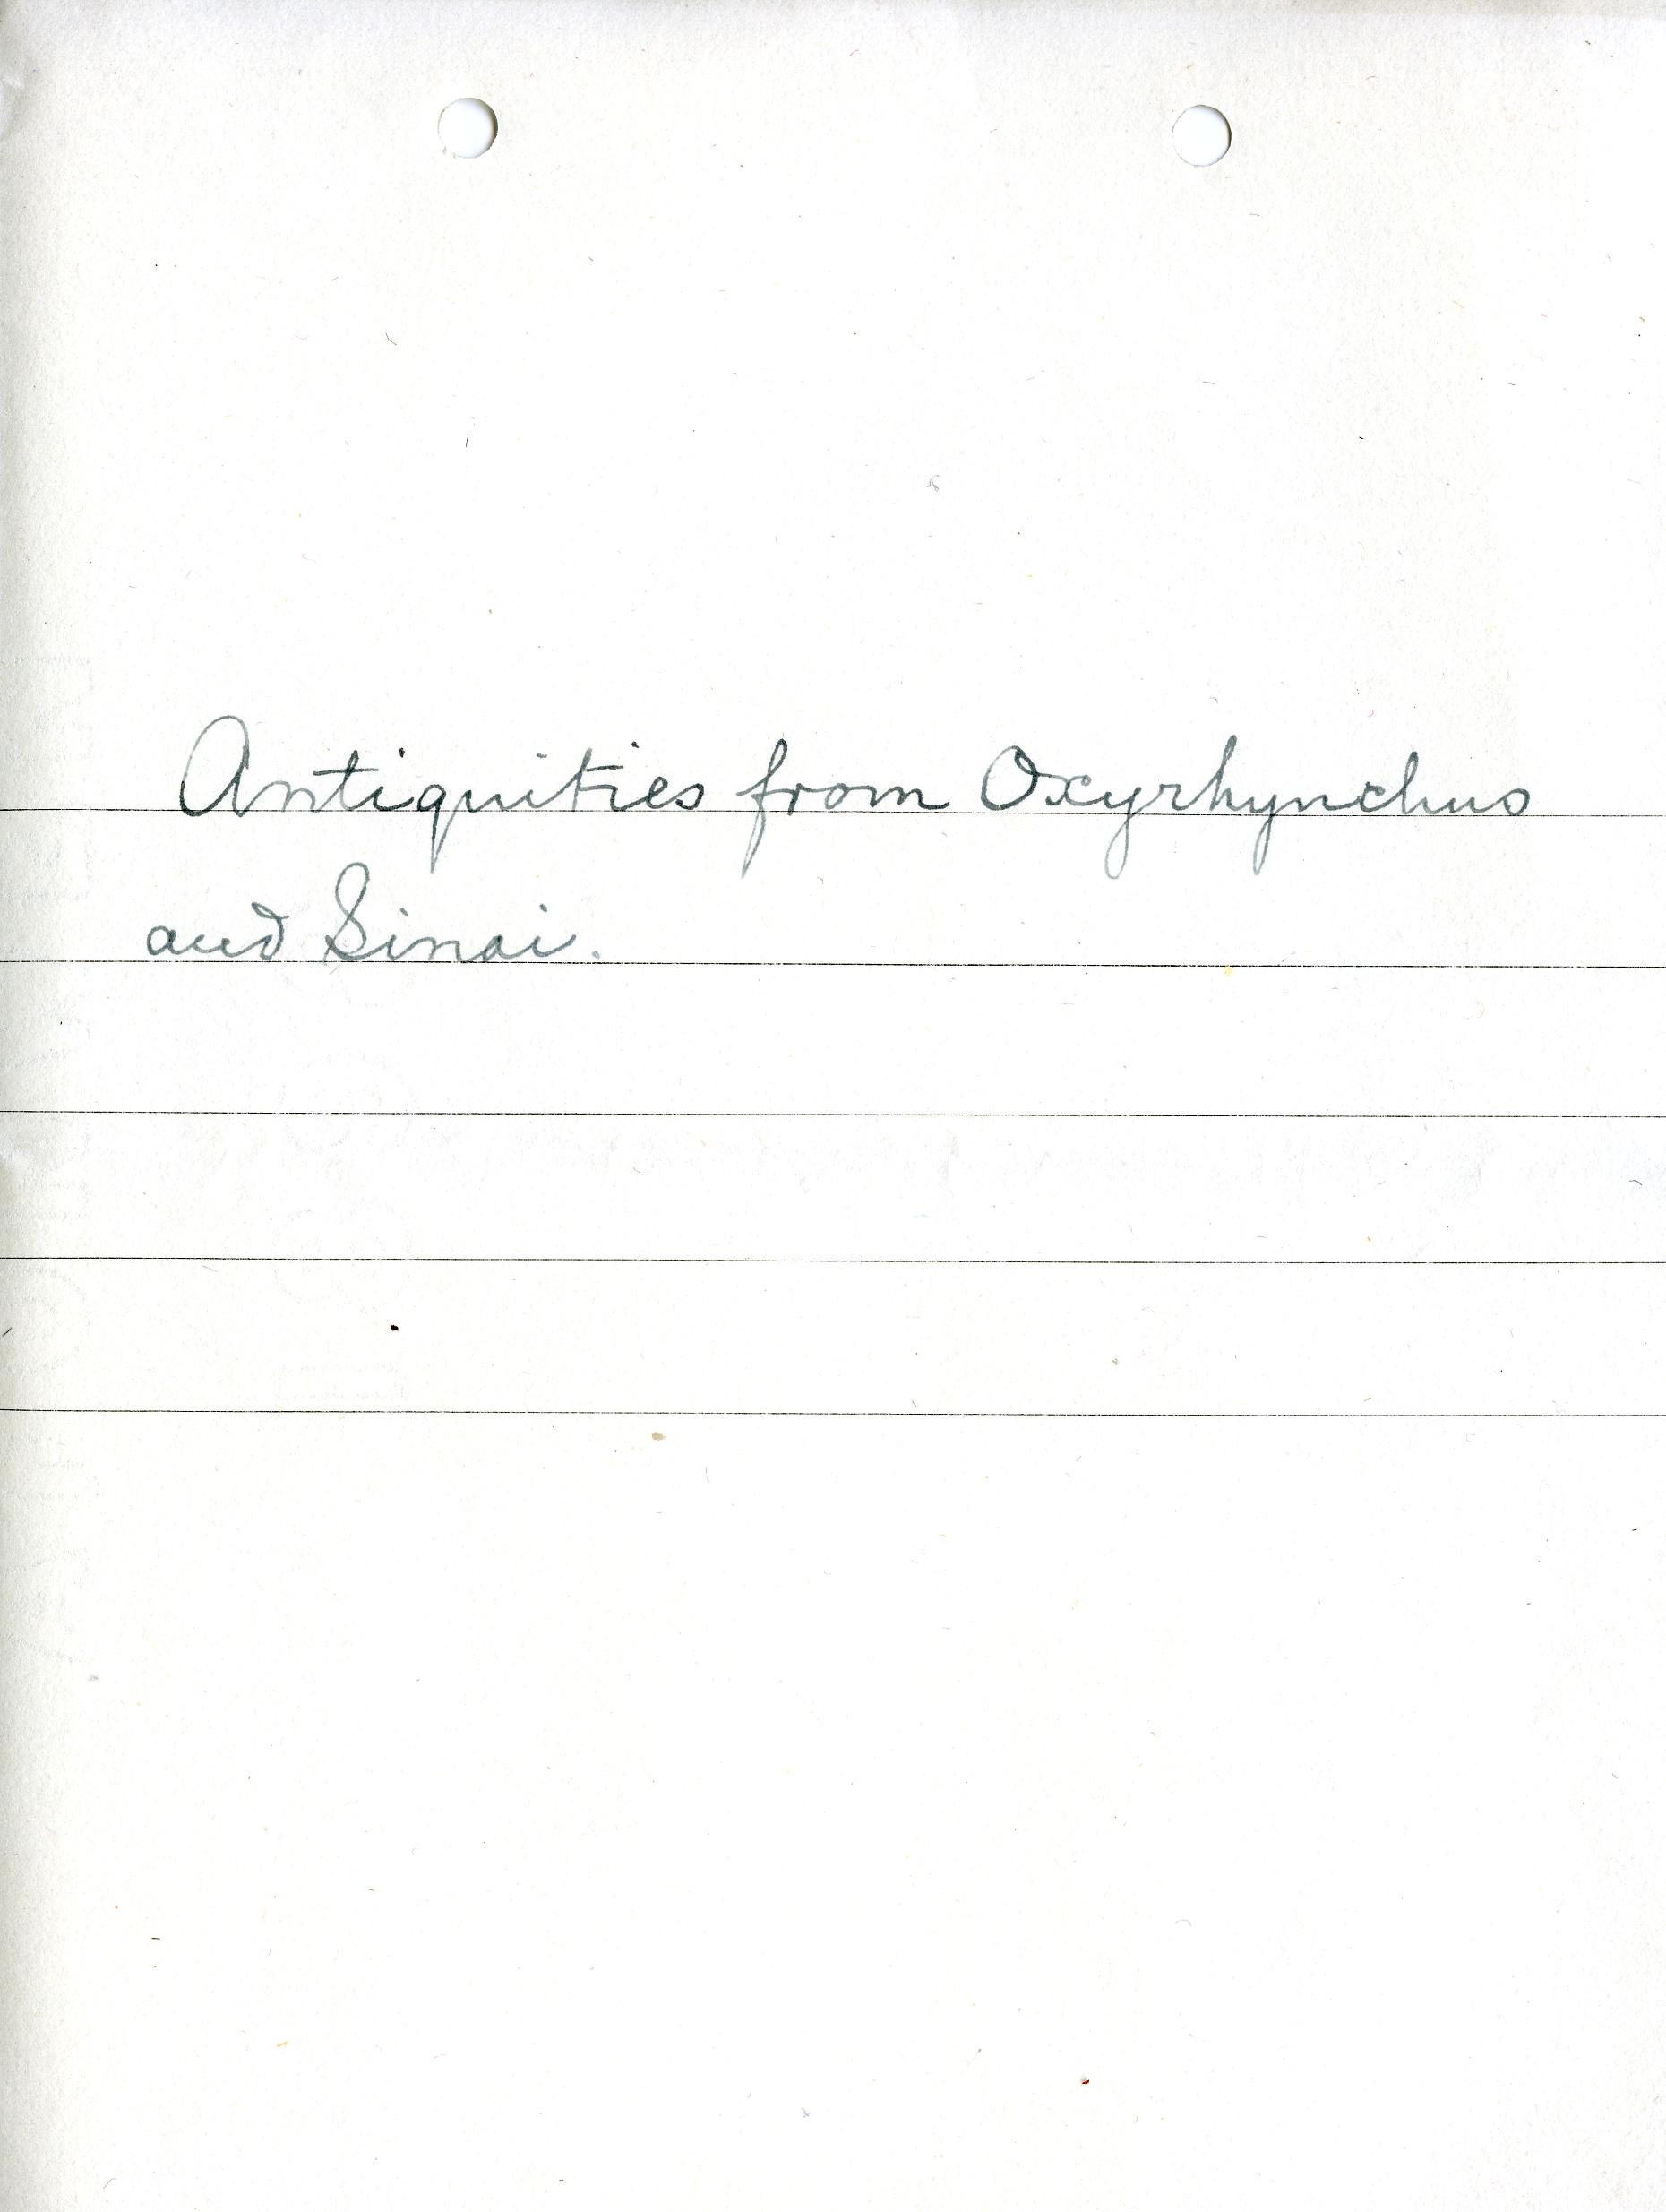 Antiquities from Oxyrhynchus
and Sinai.